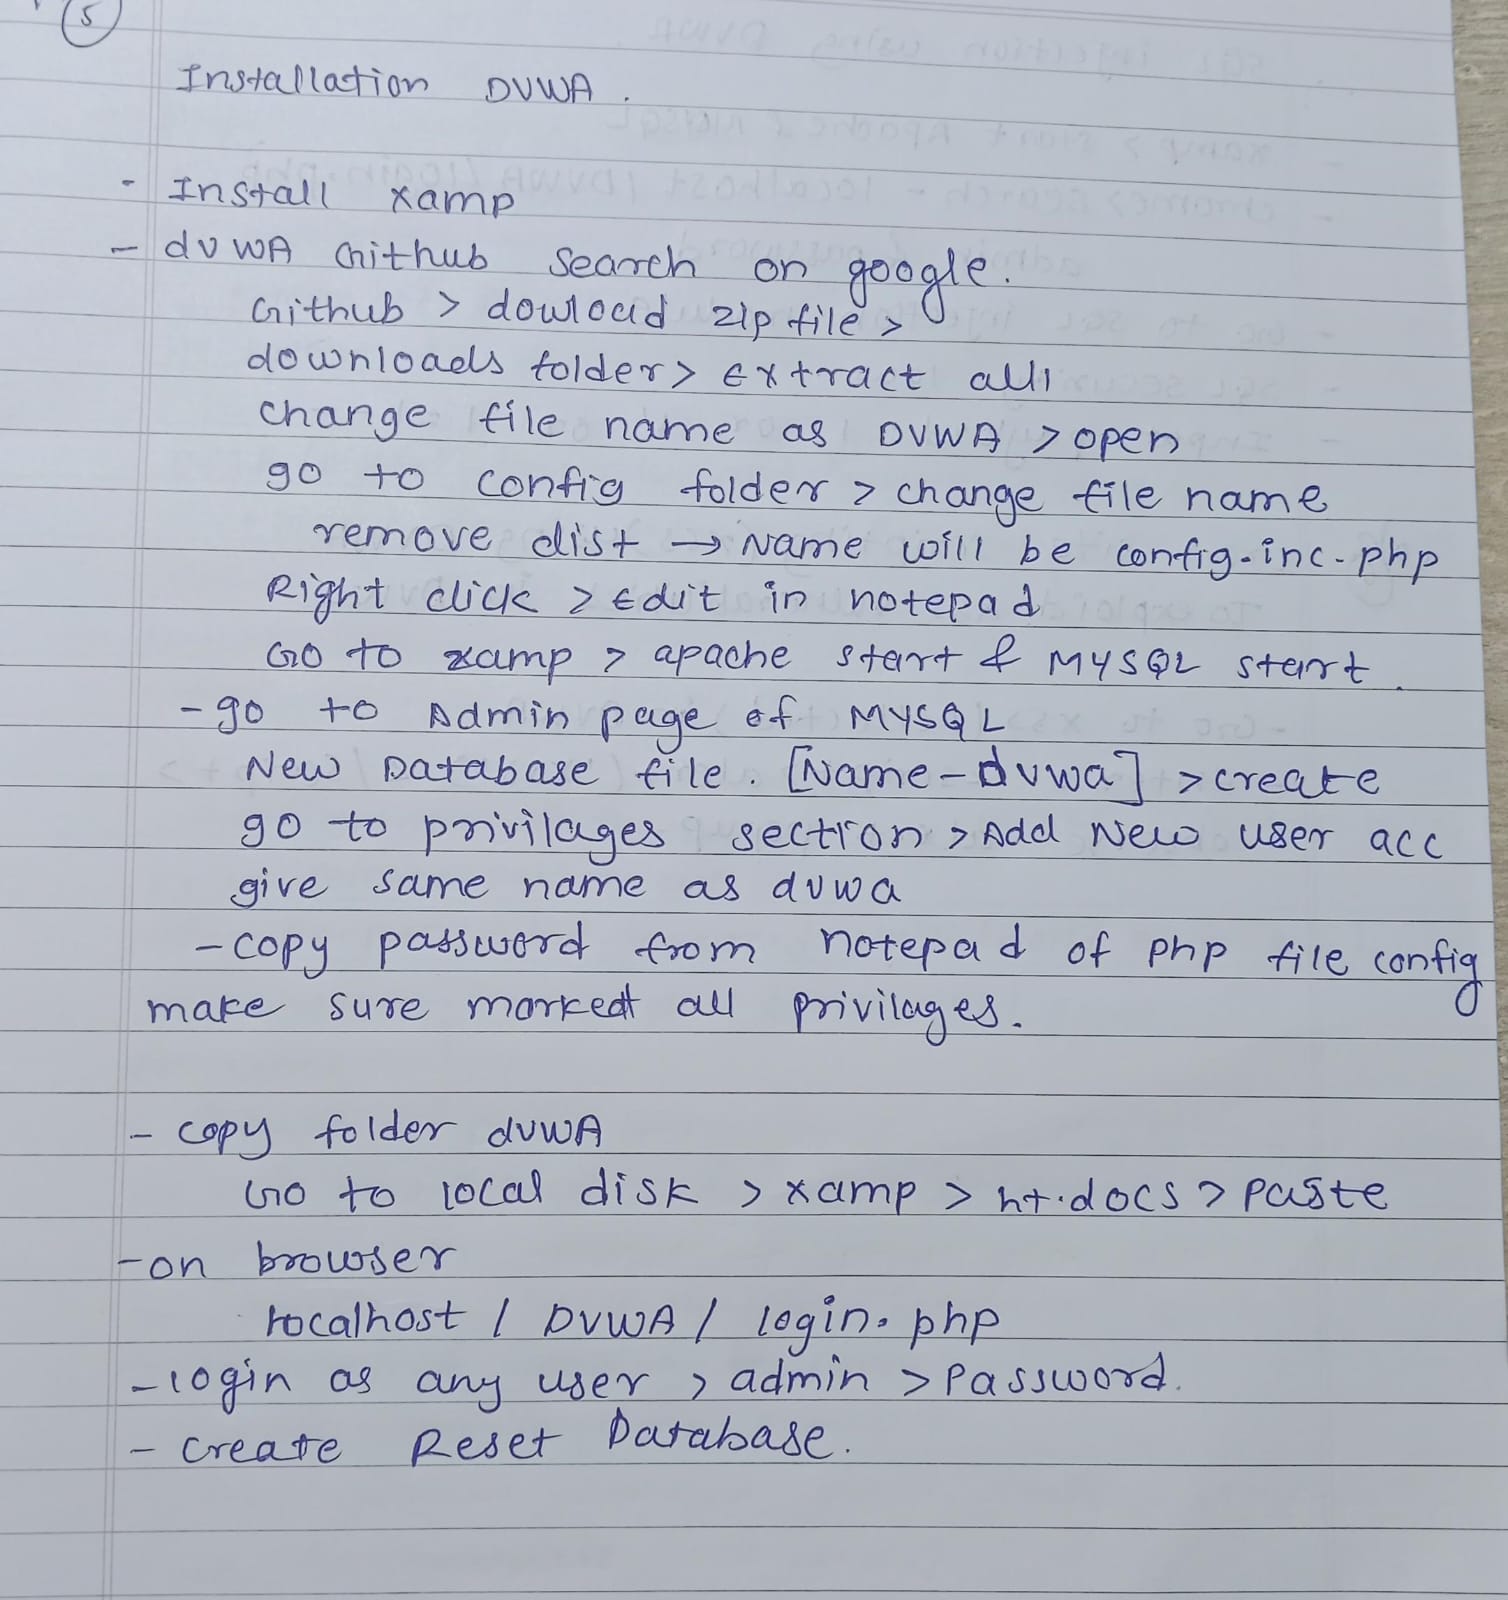 5
Installation DVWA.
- Install xamp
- dvWA Github search on google.
Github > dowload zip file >
downloads folder > Extract all
change file name as DVWA > open
go to config folder > change file name
remove dist → Name will be config.inc.php
Right click > Edit in notepad
Go to xamp > apache start & MYSQL start.
- go to Admin page of MYSQL
New Database file. [Name - dvwa] > create
go to privilages section > Add New user acc
give same name as dvwa
- copy password from notepad of php file config
make sure marked all privilages.
- copy folder dvwA
Go to local disk > xamp > ht.docs > paste
- on browser
localhost / DVWA / login.php
- login as any user > admin > Password.
- create Reset Database.